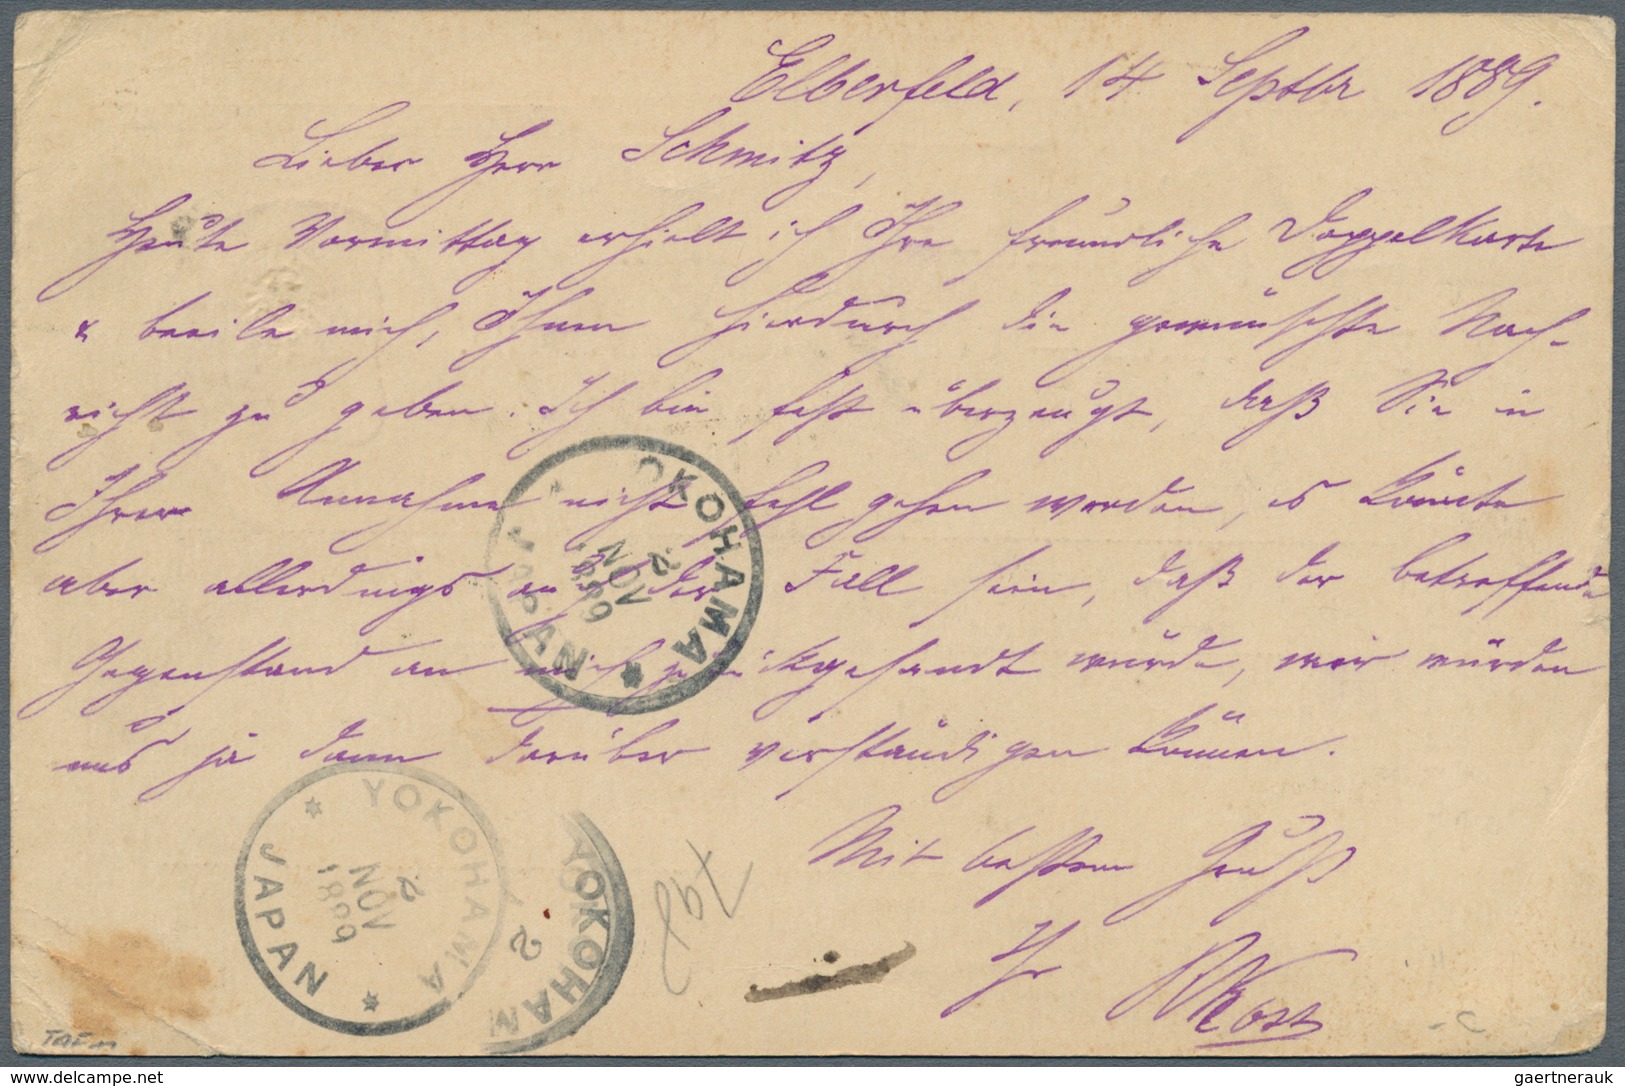 Elberfeld, 14 Septbr 1889.
Lieber Herr Schmitz,
Heute Vormittag erhielt ich Ihre freundliche Doppelkarte
& beeile mich, Ihnen hierdurch die gewünschte Nach-
richt zu geben. Ich bin fest überzeugt, daß Sie in
Ihrer Annahme nicht fehl gehen werden, es könnte
aber allerdings auch der Fall sein, daß der betreffende
Gegenstand an mich zurückgesandt würde, wir würden
uns ja dann darüber verständigen können.
Mit bestem Gruß
Ihr
YOKOHAMA
2
NOV
1899
JAPAN
YOKOHAMA
2
NOV
1899
JAPAN
YOKOHAM
2
gaertnerauk